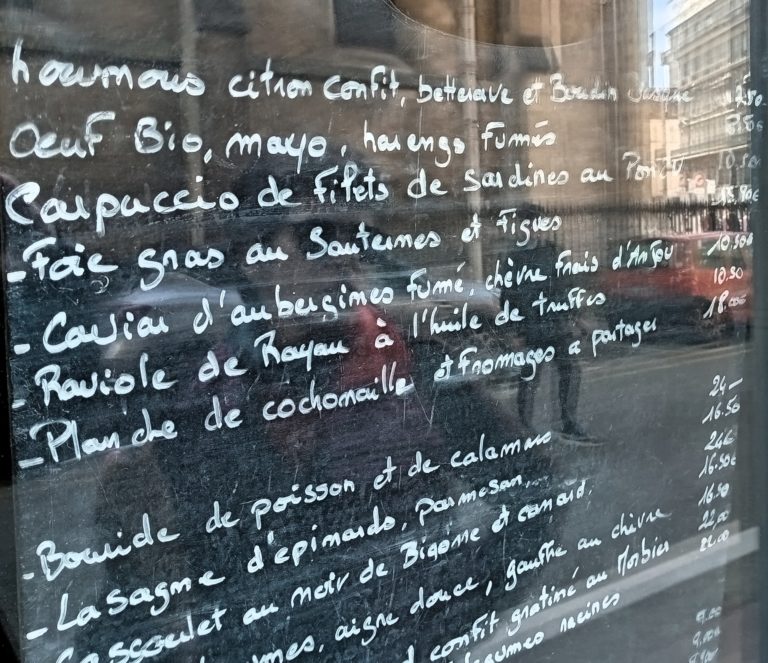 houmous citron confit, betterave et Boudin 12.50
Oeuf Bio, mayo, harengs fumés 8.50€
Carpuccio de filets de sardines au Ponzu 10.50
- Foie gras au Sauternes et figues 15.80€
- Caviar d'aubergines fumé, chèvre frais d'Anjou 10.50€
- Raviole de Royan à l'huile de truffes 10.50
- Planche de cochonaille et fromages a partager 18.00€
- Bourride de poisson et de calamars 24-
- Lasagne d'epinards, parmesan 16.50
Cassoulet au noir de Bigorre et canard, 24€
umes, aigre douce, gauffre au chèvre 16.50€
confit gratiné au Morbier 16.50
légumes racines 22.00
22.00
9.00
9.00€